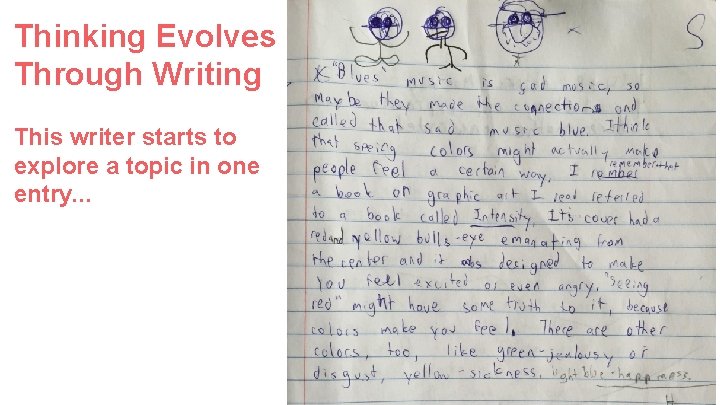 Thinking Evolves
Through Writing
This writer starts to
explore a topic in one
entry...
S
"Blues" music is sad music, so
maybe they made the connections and
called that sad music blue. I think
that seeing colors might actually make
people feel a certain way. I remember that
a book on graphic art I read refered
to a book called Intensity. It's cover had a
red and yellow bulls-eye emanating from
the center and it was designed to make
you feel excited or even angry. "Seeing
red" might have some truth to it, because
colors make you feel. There are other
colors, too, like green-jealousy or
disgust, yellow-sickness, light blue-happiness.